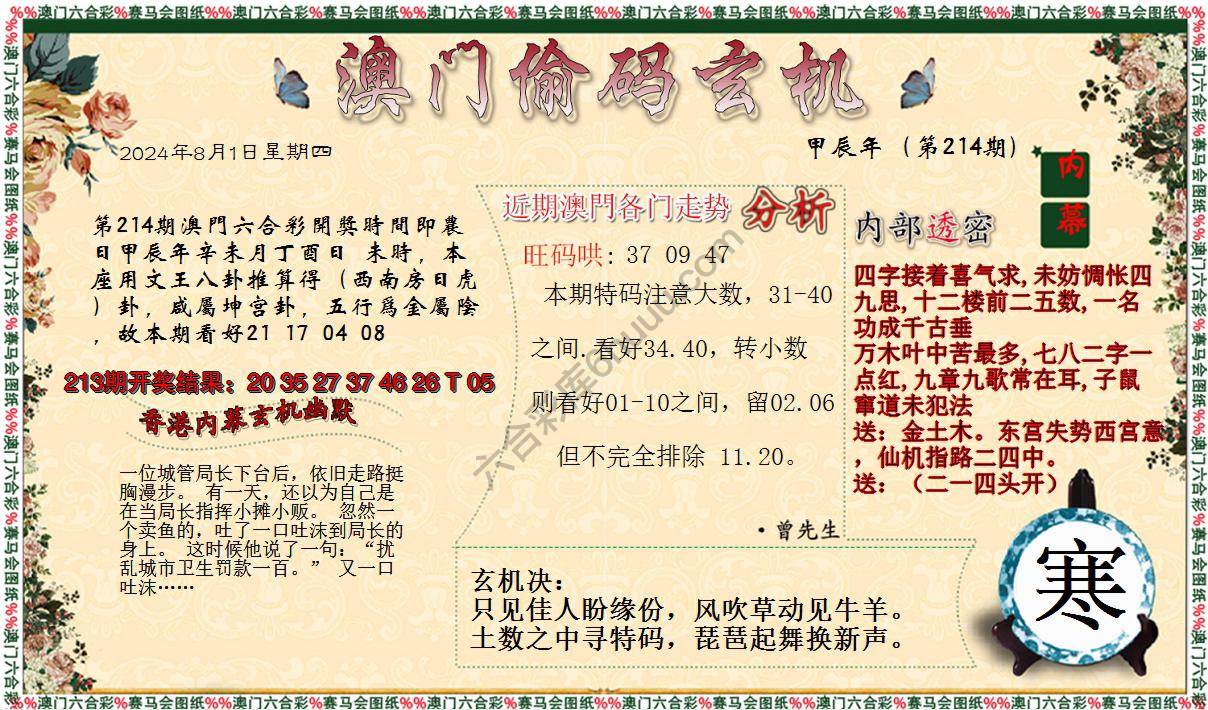 %%澳门六合彩%赛马会图纸%%澳门六合彩%赛马会图纸%%澳门六合彩%赛马会图纸%%澳门六合彩%赛马会图纸%%澳门六合彩%赛马会图纸%%澳门六合彩%赛马会图纸%%
澳门偷码玄机
2024年8月1日星期四
甲辰年（第214期）
内
幕
第214期澳門六合彩開獎時間即農
日甲辰年辛未月丁酉日 未時，本
座用文王八卦推算得（西南房日虎
）卦，咸屬坤宫卦，五行爲金屬陰
，故本期看好21 17 04 08
213期开奖结果：20 35 27 37 46 26 T 05
香港内幕玄机幽默
一位城管局长下台后，依旧走路挺
胸漫步。 有一天，还以为自己是
在当局长指挥小摊小贩。 忽然一
个卖鱼的，吐了一口吐沫到局长的
身上。 这时候他说了一句：“扰
乱城市卫生罚款一百。” 又一口
吐沫……
近期澳門各门走势 分析
旺码哄: 37 09 47
本期特码注意大数，31-40
之间.看好34.40，转小数
则看好01-10之间，留02.06
但不完全排除 11.20。
·曾先生
内部透密
四字接着喜气求,未妨惆怅四
九思,十二楼前二五数,一名
功成千古垂
万木叶中苦最多,七八二字一
点红,九章九歌常在耳,子鼠
窜道未犯法
送：金土木。东宫失势西宫意
，仙机指路二四中。
送：（二一四头开）
玄机决：
只见佳人盼缘份，风吹草动见牛羊。
土数之中寻特码，琵琶起舞换新声。
寒
%%澳门六合彩%赛马会图纸%%澳门六合彩%赛马会图纸%%澳门六合彩%赛马会图纸%%澳门六合彩%赛马会图纸%%澳门六合彩%赛马会图纸%%澳门六合彩%赛马会图纸%%